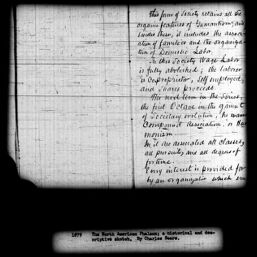 This form of Society retains all the
organic features of Guarantism; and
besides these, it includes the associ-
ation of families and the organiza-
tion of Domestic Labor.
In this Society Wage Labor
is fully abolished; the laborer
is Co-proprietor, Self employed,
and shares proceeds.
The next term in the Series,
the first Octave in the gamut
of Societary evolution, he names
Compound Association, or Har-
monism
In it are associated all classes,
all pursuits, and all degrees of
fortune.
Every interest is provided for
by an organization which
1879 The North American Phalanx; a historical and des-
criptive sketch, By Charles Sears.